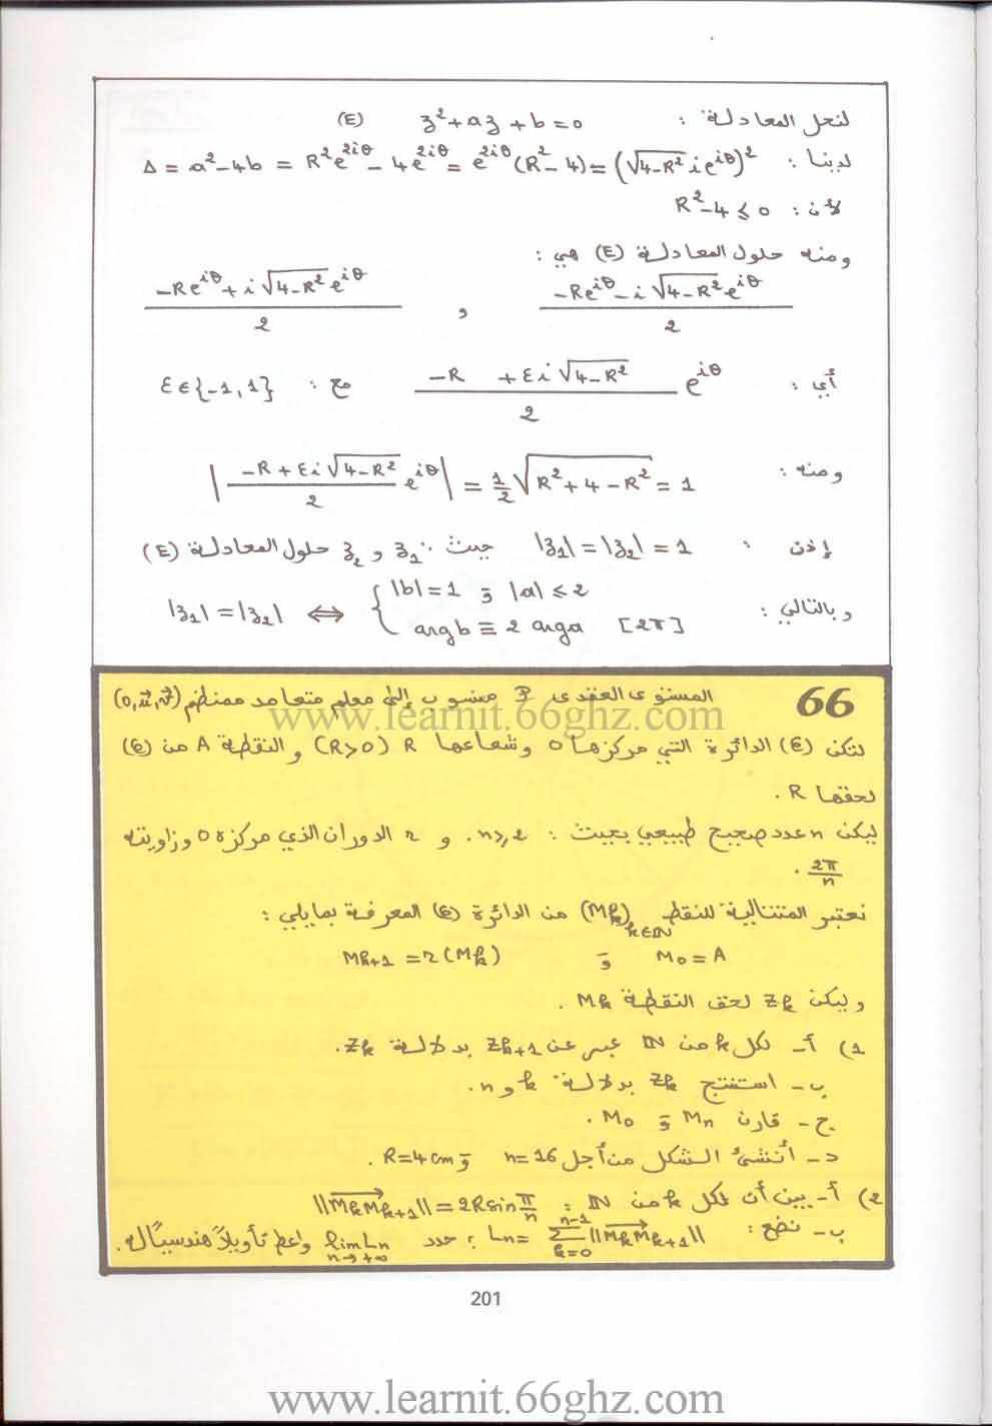 لنحل المعادلة : z²+az+b=0 (E)
لدينا : Δ = a²-4b = R²e^{2iθ} - 4e^{2iθ} = e^{2iθ}(R²-4) = (√(4-R²) i e^{iθ})²
لأن : R²-4 ≤ 0
ومنه حلول المعادلة (E) هي :
(-Re^{iθ} - i√(4-R²) e^{iθ})/2 , (-Re^{iθ} + i√(4-R²) e^{iθ})/2
أي : (-R + εi√(4-R²))/2 e^{iθ} مع : ε∈{-1,1}
ومنه : |(-R+εi√(4-R²))/2 e^{iθ}| = 1/2 √(R²+4-R²) = 1
إذن : |z₁|=|z₂|=1 حيث : z₁ و z₂ حلول المعادلة (E)
وبالتالي : |z₁|=|z₂| ⇔ { |b|=1 و |a| ≤ 2
argb ≡ 2 arga [2π]
66 المستوى العقدي P منسوب إلى معلم متعامد ممنظم (o,u⃗,v⃗)
www.learnit.66ghz.com
لتكن (C) الدائرة التي مركزها O وشعاعها R (R>0) والنقطة A من (C)
لحقها R .
ليكن n عدد صحيح طبيعي بحيث : n≥2 . و r الدوران الذي مركزه O وزاويته
2π/n .
نعتبر المتتالية للنقط (Mk)k∈IN من الدائرة (C) المعرفة بمايلي :
M₀=A و Mk+1 = r(Mk)
وليكن Zk لحق النقطة Mk .
1) أ- لكل k من IN عبر عن Zk+1 بدلالة Zk.
ب- استنتج Zk بدلالة k و n.
ج- قارن Mn و M₀ .
د- أنشئ الشكل من أجل n=16 و R=4cm .
2) أ- بين أن لكل k من IN : ||MkMk+1|| = 2R sin π/n
ب- نضع : Ln = Σ_{k=0}^{n-1} ||MkMk+1|| ; حدد lim Ln n→+∞ واعط تأويلاً هندسياً له.
201
www.learnit.66ghz.com